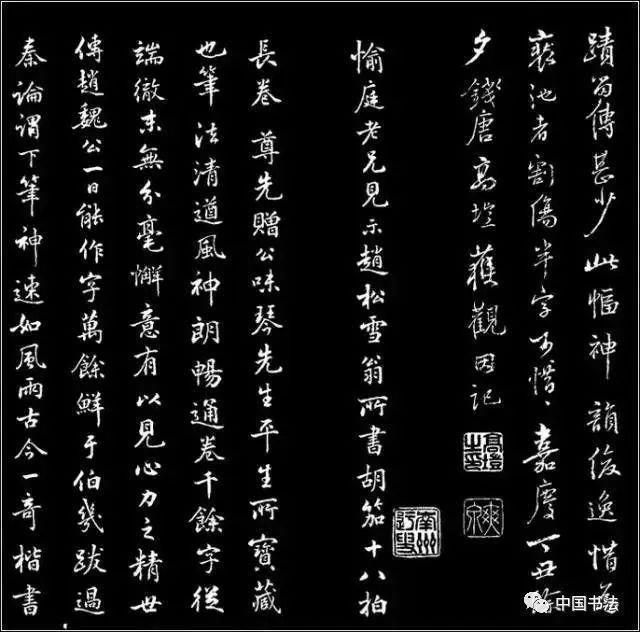 蹟留傳甚少此幅神韻俊逸惜為
裝池者割傷半字可惜〻嘉慶丁丑除
夕錢唐高塏獲觀因記
高塏之印
爽泉
愉庭老兄見示趙松雪翁所書胡笳十八拍
長卷 尊先贈公味琴先生平生所寶藏
也筆法清遒風神朗暢通卷千餘字從
端徹末無分毫懈意有以見心力之精世
傳趙魏公一日能作字萬餘鮮于伯幾跋過
秦論謂下筆神速如風雨古今一奇楷書
中国书法